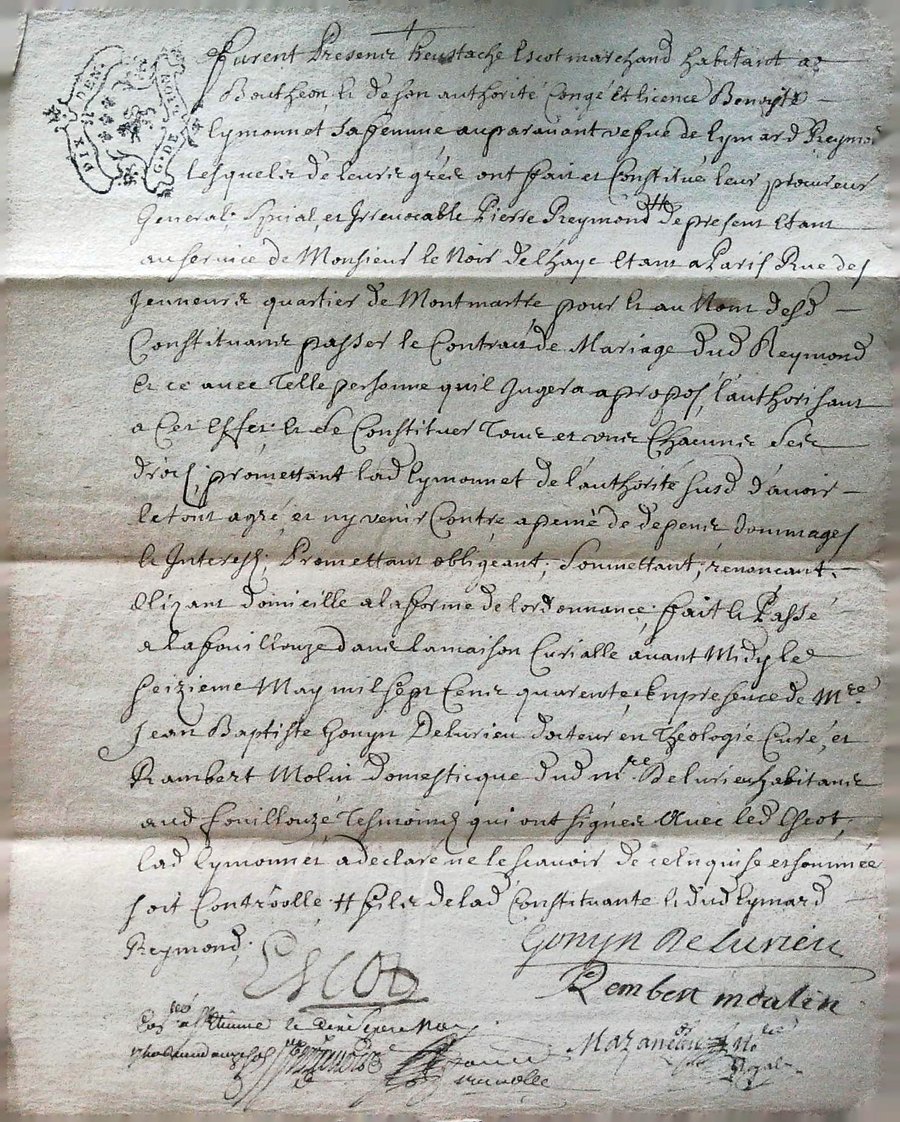 DIX DEN. G. DE
furent Presens heustache Escot marchand habitant a
Boutheon, & de son authorité Congé et licence Benoyte
Eymonnet sa femme auparavant vefue de Eymard Reymond
Lesquels de leurs grés ont fait et Constitué leur procureur
General, Special, et Irrevocable Pierre Reymond # de present Etant
au service de Monsieur le Noir de l'haye Etant a Paris Rue des
Jeuneurs quartier de Montmartre pour & au Nom desd
Constituans passer le Contrat de Mariage dud Reymond
Et ce avec Telle personne quil Jugera a propos, l'authorisant
a Cet Effet & de Constituer Tous et uns Chacuns Ses
droits, promettant lad Eymonnet de l'authorité susd d'avoir
le tout agré, et ny venir Contre, a peine de depens, dommages
& Interests; Promettant obligeant, Soumettant, renoncant,
Elizant domicille a la forme de lordonnance, fait & Passé
a la fouillouze dans la maison Curialle avant Midy le
Seizieme May mil sept Cens quarente, En presence de Mre
Jean Baptiste Gonyn Delurieu docteur en Théologie Curé, et
Rambert Molin domesticque dud mre Delurieu habitans
aud fouillouze, Tesmoins qui ont signes Avec led Escot,
lad Eymonnet a declaré ne le scavoir de ce Enquise et sommée
soit Controolle, # fils de lad Constituante & dud Eymard
Reymond,
Escot Gonyn De Lurieu
Rembert moulin
a St Etienne le May
Mazancieu Nore
Royal